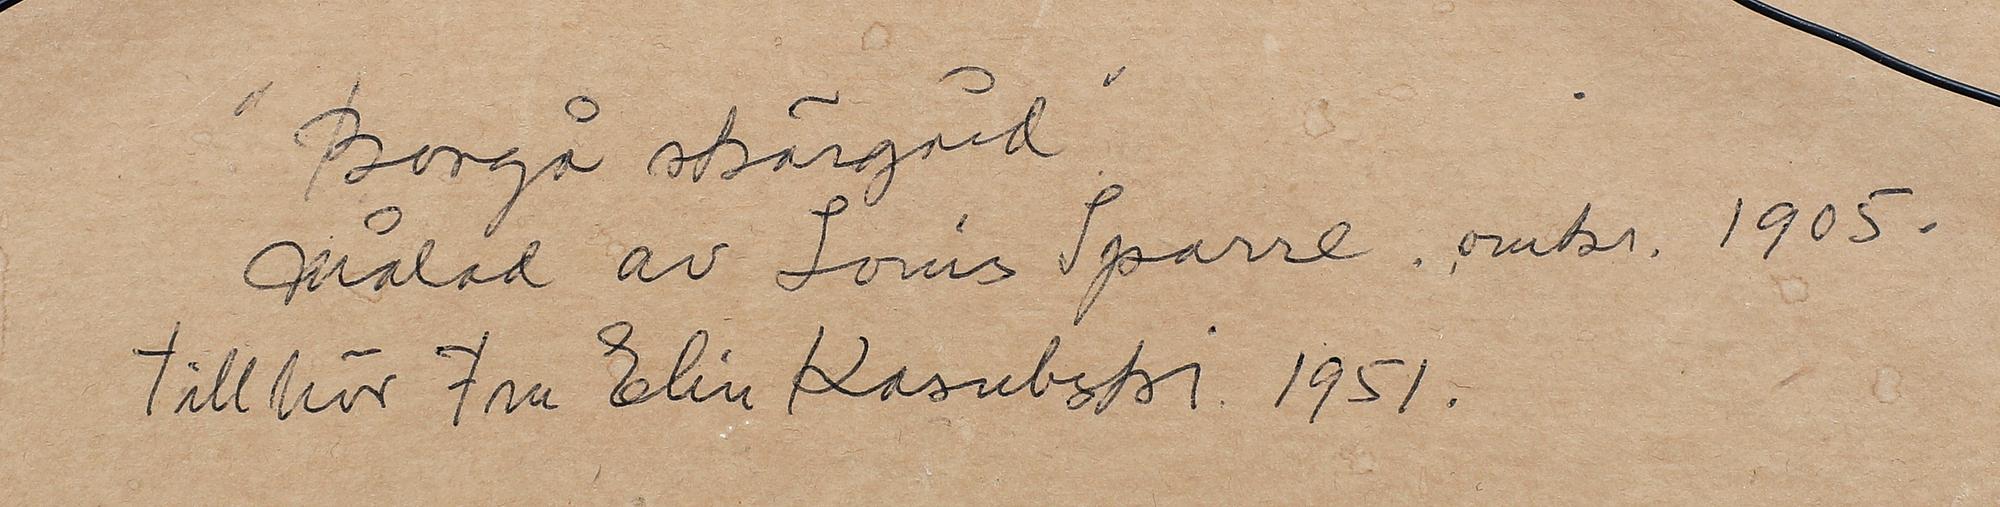 "Borgå skärgård"
Målad av Louis Sparre. omkr. 1905.
Tillhör Fru Elin Kasubski. 1951.